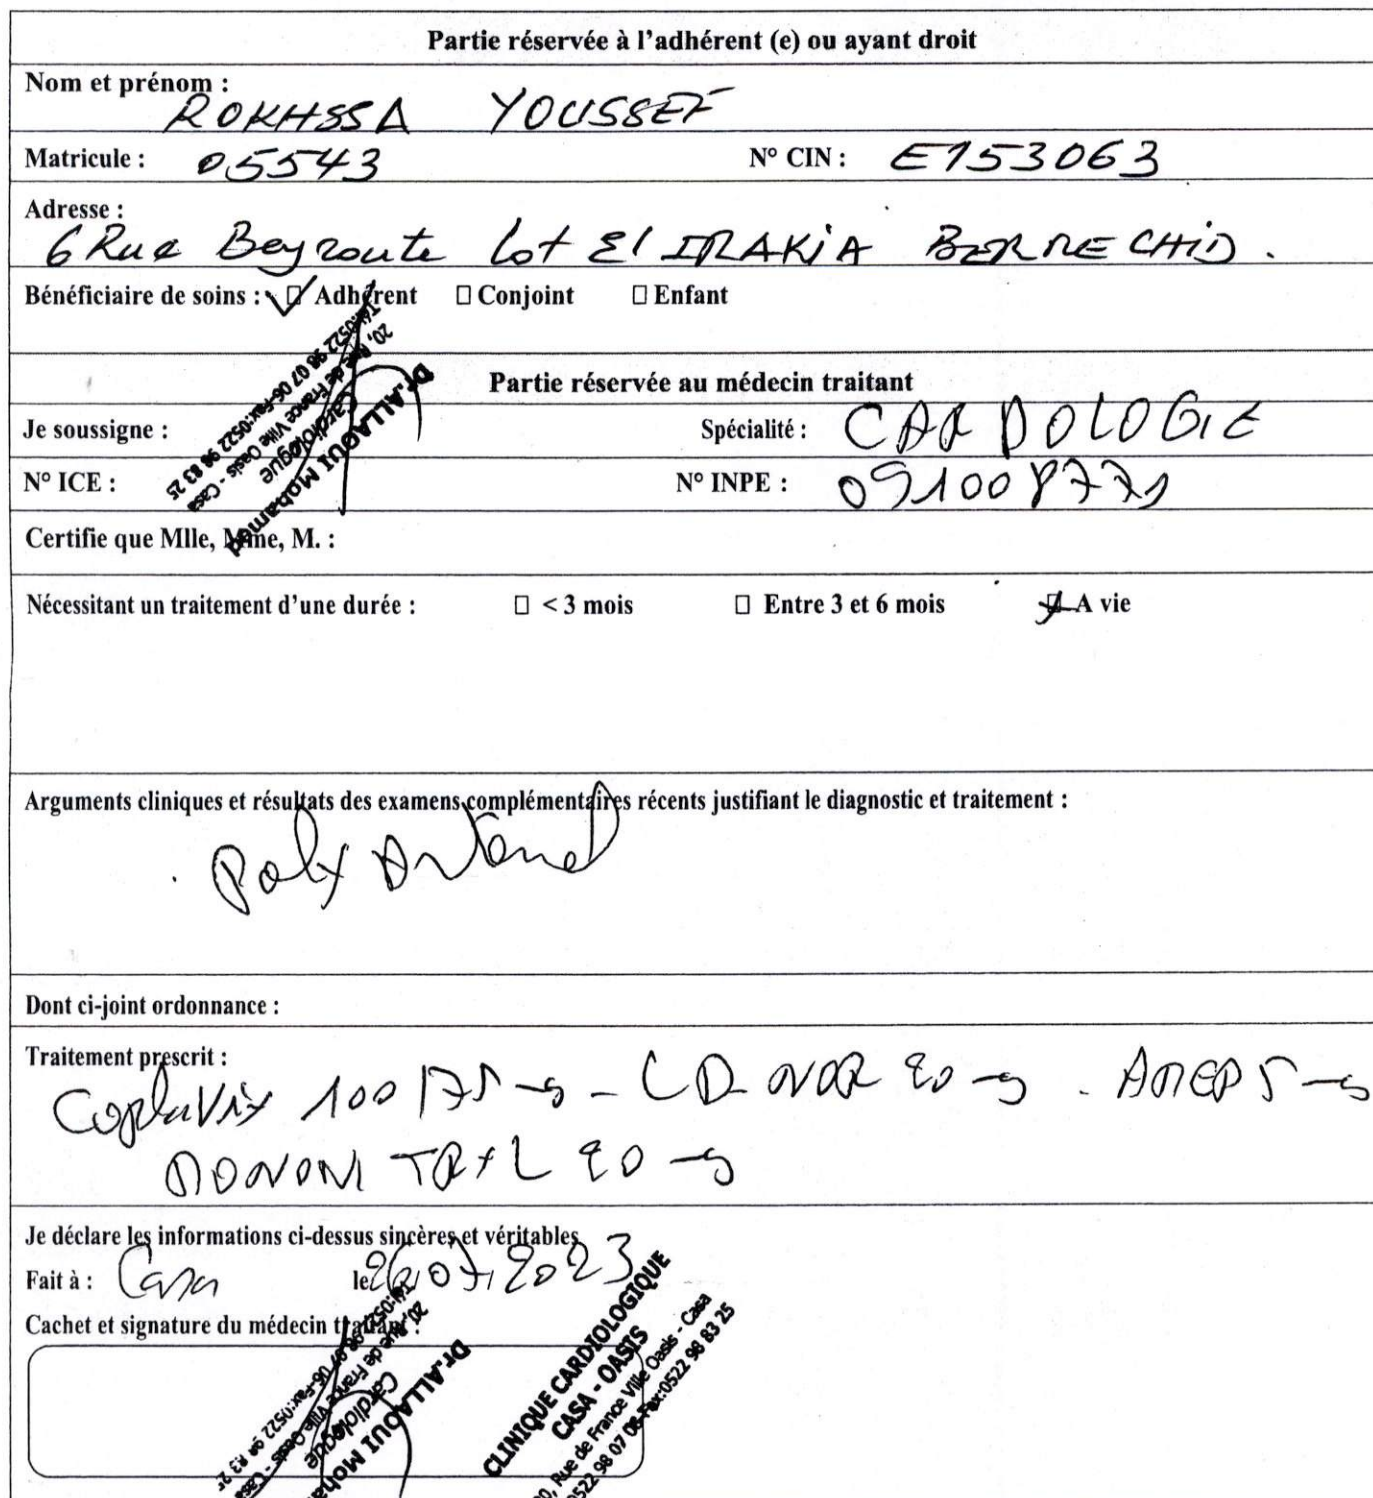 Partie réservée à l'adhérent (e) ou ayant droit
Nom et prénom :
ROKHSSA YOUSSEF
Matricule : 05543 N° CIN : E153063
Adresse :
6 Rue Beyroute Lot El IRAKiA BERRECHiD .
Bénéficiaire de soins : ☑ Adhérent ☐ Conjoint ☐ Enfant
Partie réservée au médecin traitant
Je soussigne : Spécialité : CARDOLOGIE
Dr.ALLAOUI Mohamed
Cardiologue
20, Rue de France Ville Oasis - Casa
Tél:0522 98 07 06-Fax:0522 98 83 25
N° ICE : N° INPE : 091008771
Certifie que Mlle, Mme, M. :
Nécessitant un traitement d'une durée : ☐ < 3 mois ☐ Entre 3 et 6 mois ☒ A vie
Arguments cliniques et résultats des examens complémentaires récents justifiant le diagnostic et traitement :
Poly
Dont ci-joint ordonnance :
Traitement prescrit :
CoplaVix 100/75 mg - CD NOR 20 mg - AMEP 5 mg
MONONITRYL 20 mg
Je déclare les informations ci-dessus sincères et véritables
Fait à : Casa le 26,07,2023
Cachet et signature du médecin traitant :
Dr.ALLAOUI Moha
Cardiologue
20, Rue de France Ville Oasis - Casa
Tél:0522 98 07 06-Fax:0522 98 83 25
CLINIQUE CARDIOLOGIQUE
CASA - OASIS
20, Rue de France Ville Oasis - Casa
0522 98 07 06-Fax:0522 98 83 25